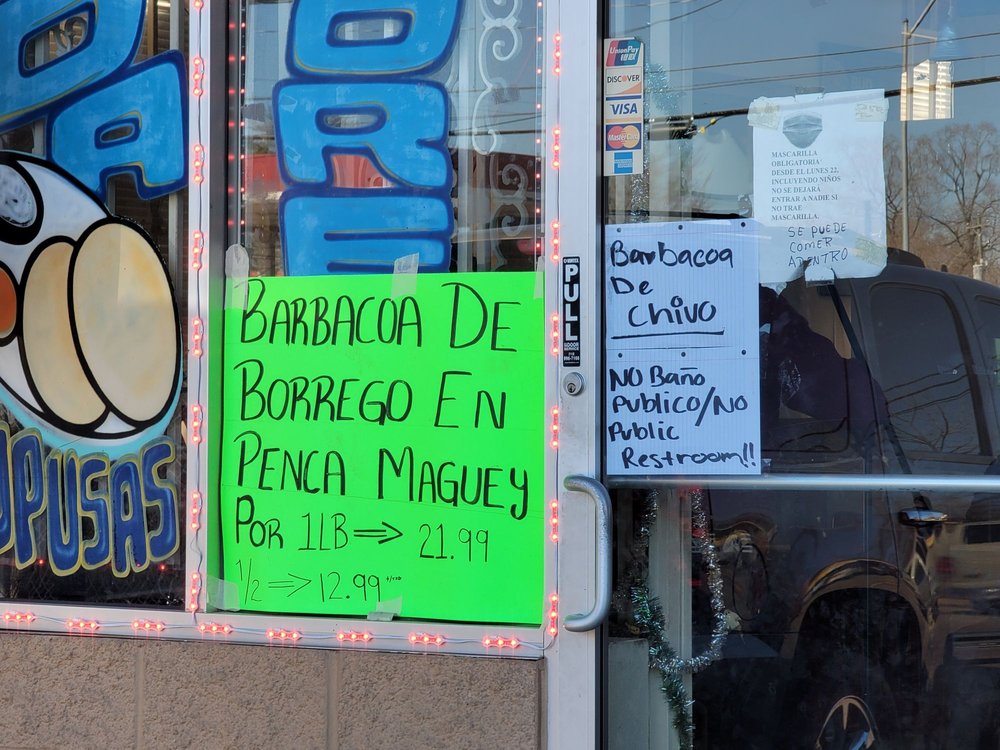 ORE
PUPUSAS
BARBACOA DE
BORREGO EN
PENCA MAGUEY
POR 1LB ⇒ 21.99
1/2 ⇒ 12.99
PULL
UnionPay
DISCOVER
VISA
MasterCard
Barbacoa
De
Chivo
NO Baño
Publico/No
Public
Restroom!!
MASCARILLA
OBLIGATORIA
DESDE EL LUNES 22,
INCLUYENDO NIÑOS
NO SE DEJARÁ
ENTRAR A NADIE SI
NO TRAE
MASCARILLA.
SE PUEDE
COMER
ADENTRO